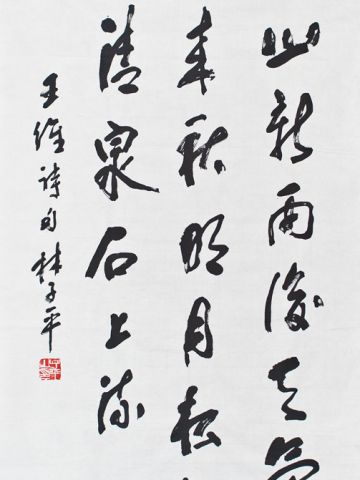 山新雨後天氣
来秋明月松
清泉石上流
王維詩句林子平